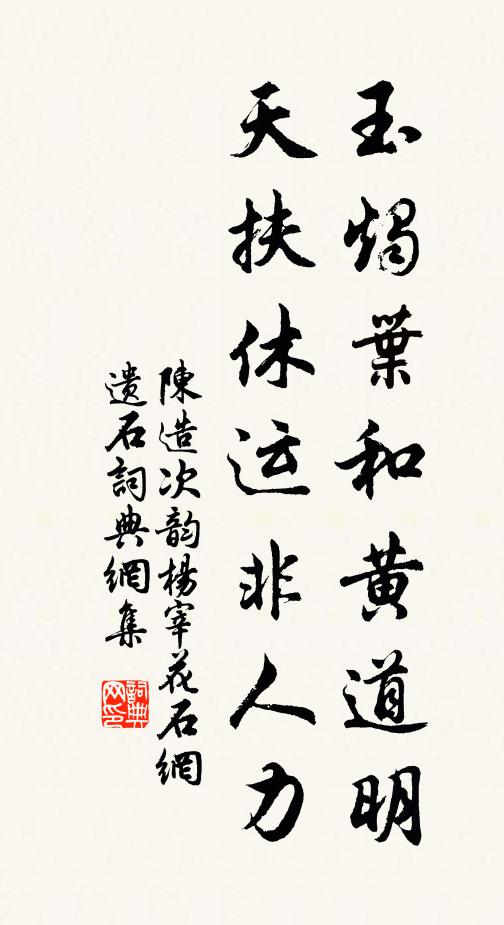 玉燭葉和黃道明
天扶休运非人力
陳造次韵楊宰花石網
遺石詞典網集
詞典
网印